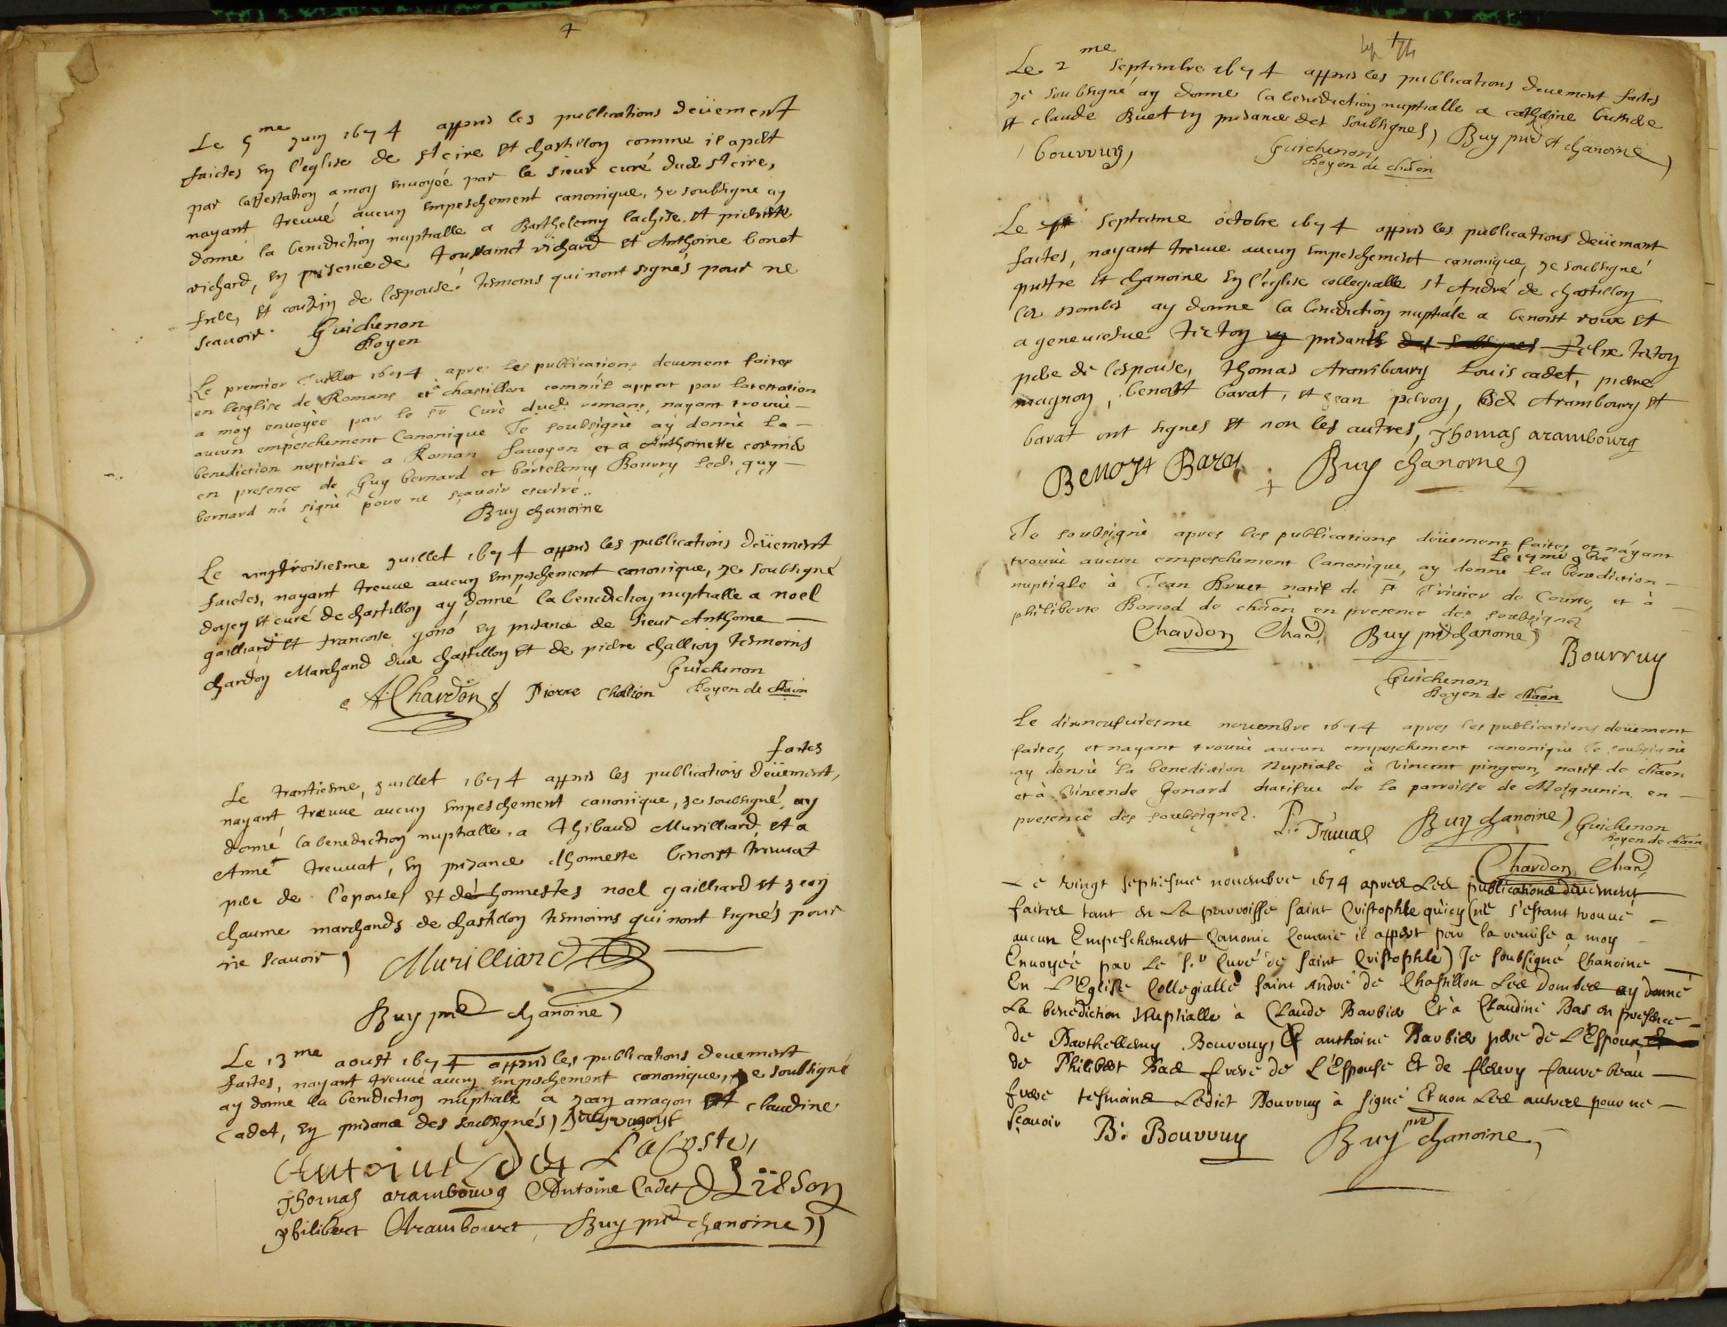 4
Le 5me juin 1674 appres les publications deüement
faictes en l'eglise de st cire et chastillon comme il apert
par l'attestation a moy envoyée par le sieur curé dud st cire,
nayant treuué aucun empeschement canonique, je soubsigne ay
donné la benediction nuptialle a Barthelemy lachise et pierrette
richard, en presence de toussainct richard et Anthoine bonet
frere, et cousin de l'espouse tesmoins qui nont signés pour ne
scauoir. Guichenon
Doyen
Le premier Juillet 1674 apres les publications deuement faites
en l'esglise de Romans et chastillon comme il appert par latestation
a moy envoyée par le sr Curé dud. romans, nayant trouué
aucun empeschement Canonique Je soubsigné ay donné la
benediction nuptiale a Roman sauoyen et a Anthoinette
en presence de Guy bernard et bartelemy Bourry led. guy
bernard na signé pour ne sçauoir escrire.
Buy chanoine
Le vingtroisiesme juillet 1674 appres les publications deüement
faictes, nayant treuue aucun empeschement canonique, je soubsigné
doyen et curé de chastillon ay donné la benediction nuptialle a noel
gailliard et francoise gono en presance de sieur Anthoine
chardon Marchand dud chastillon et de pierre challion tesmoins
Guichenon
A. Chardon Pierre Chalion Doyen de chaōn
faites
Le trantiesme, juillet 1674 appres les publications deüement,
nayant treuue aucun empeschement canonique, je soubsigné, ay
donné la benediction nuptialle a Thibaud Murilliard et a
Anne treuuat, en presance d'honneste benoist treuuat
pere de l'epouse et de honnestes noel gailliard et jean
chaume marchands de chastillon tesmoins qui nont signés pour
ne scauoir) Murilliard
Buy pred chanoine)
Le 13me aoust 1674 appres les publications deuement
faites, nayant treuué aucun empeschement canonique, je soubsigné
ay donne la benediction nuptiale a jean arragon et claudine
Cadet, en presance des soubsignés)
Antoine de LaCoste,
Thomas arambourg Antoine Cadet
philibert Arambouret Buy pred chanoine))
Le 2me septembre 1674 appres les publications deuement faites
je soubsigné ay donne la benediction nuptialle a
et claude Buet en presance des soubsignes, Buy pred et chanoine)
bourruy, Guichenon
Doyen de chaōn
Le septieme octobre 1674 appres les publications deüemant
faites, nayant treuue aucun empeschement canonique, je soubsigné
prestre et chanoine en l'église collegialle st André de chastillon
les Dombes ay donne la benediction nuptiale a benoist roux et
a geneuiesue tieton en presance des soubsignes Felix tieton
pere de l'espouse, thomas Arambourg Louis cadet, pierre
magnon, benoist barat, et jean perron, led Arambourg et
barat ont signes et non les autres, Thomas arambourg
Benoist Barat Buy chanoine)
Je soubsigné apres les publications deüement faites, et n'ayant
trouué aucun empeschement Canonique, ay donné la benediction
nuptiale à Jean natif de st Triuier de Courtes, et à
philiberte de chaōn en presence des soubsignez
Chardon Chan. Buy pred chanoine)
Bourruy
Guichenon
Doyen de chaōn
Le dixneufuiesme nouembre 1674 apres les publications deüement
faites, et nayant trouué aucun empeschement canonique Je soubsigné
ay donné la benediction Nuptiale à Vincent pingeon, natif de chaōn
et à Gonard natifue de la parroisse de en
presence des soubsignez. Buy chanoine) Guichenon
Doyen de chaōn
Chardon Chan
Le vingt septiesme nouembre 1674 apres Les publications deuement
faittes tant en La parroisse saint Cristophle qu'icy (ne s'estant trouué
aucun Empeschement Canonic Comme il appert par la remise a moy
Enuoyée par Le sr Curé de saint Cristophle) Je soubsigné Chanoine
En L'Eglise Collegialle saint André de Chastillon Les Dombes ay donné
La benediction Nuptialle à Claude Barbier Et à Claudine Bas en presence
de Barthellemy Bourruy, Et anthoine Barbier pere de L'Espoux, et
de Philibert Bas frere de L'Espouse Et de fleury
frere tesmoins Ledict Bourruy à signé Et non Les autres pour ne
sçauoir B: Bourruy Buy pred chanoine,